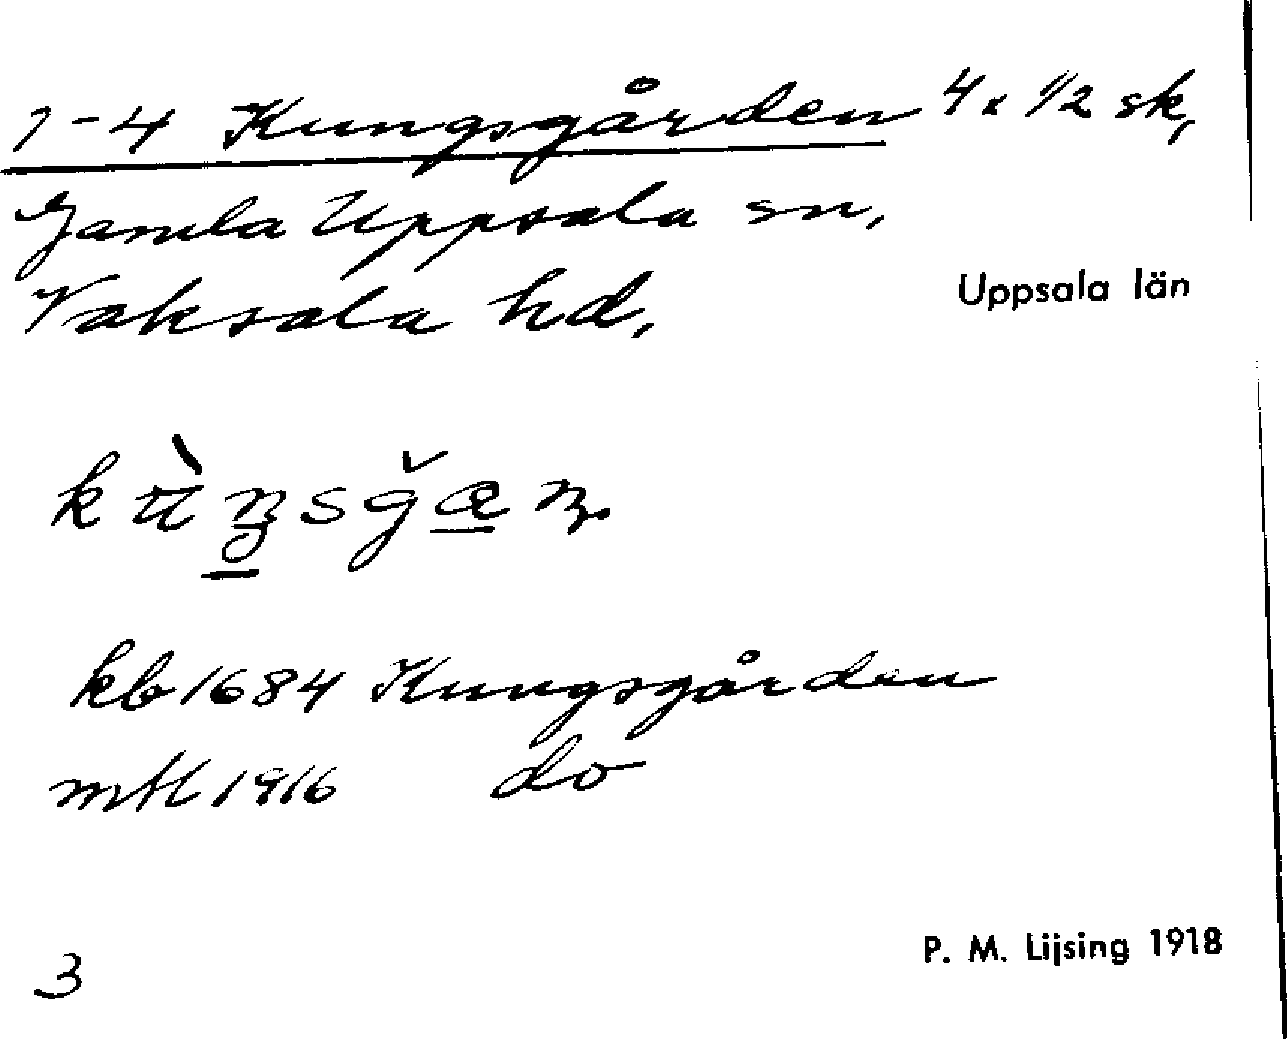 1-4 Kungsgården 4 x 1/2 sk,
Gamla Uppsala sn,
Vaksala hd,
Uppsala län
kb 1684 Kungsgården
mtl 1916 do
P. M. Lijsing 1918
3